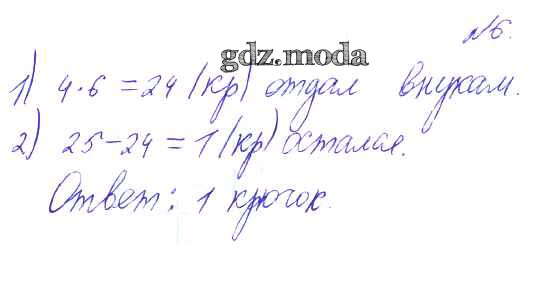 №6.
gdz.moda
1) 4·6=24 (кр) отдал внукам.
2) 25-24=1 (кр) остался.
Ответ: 1 крючок.